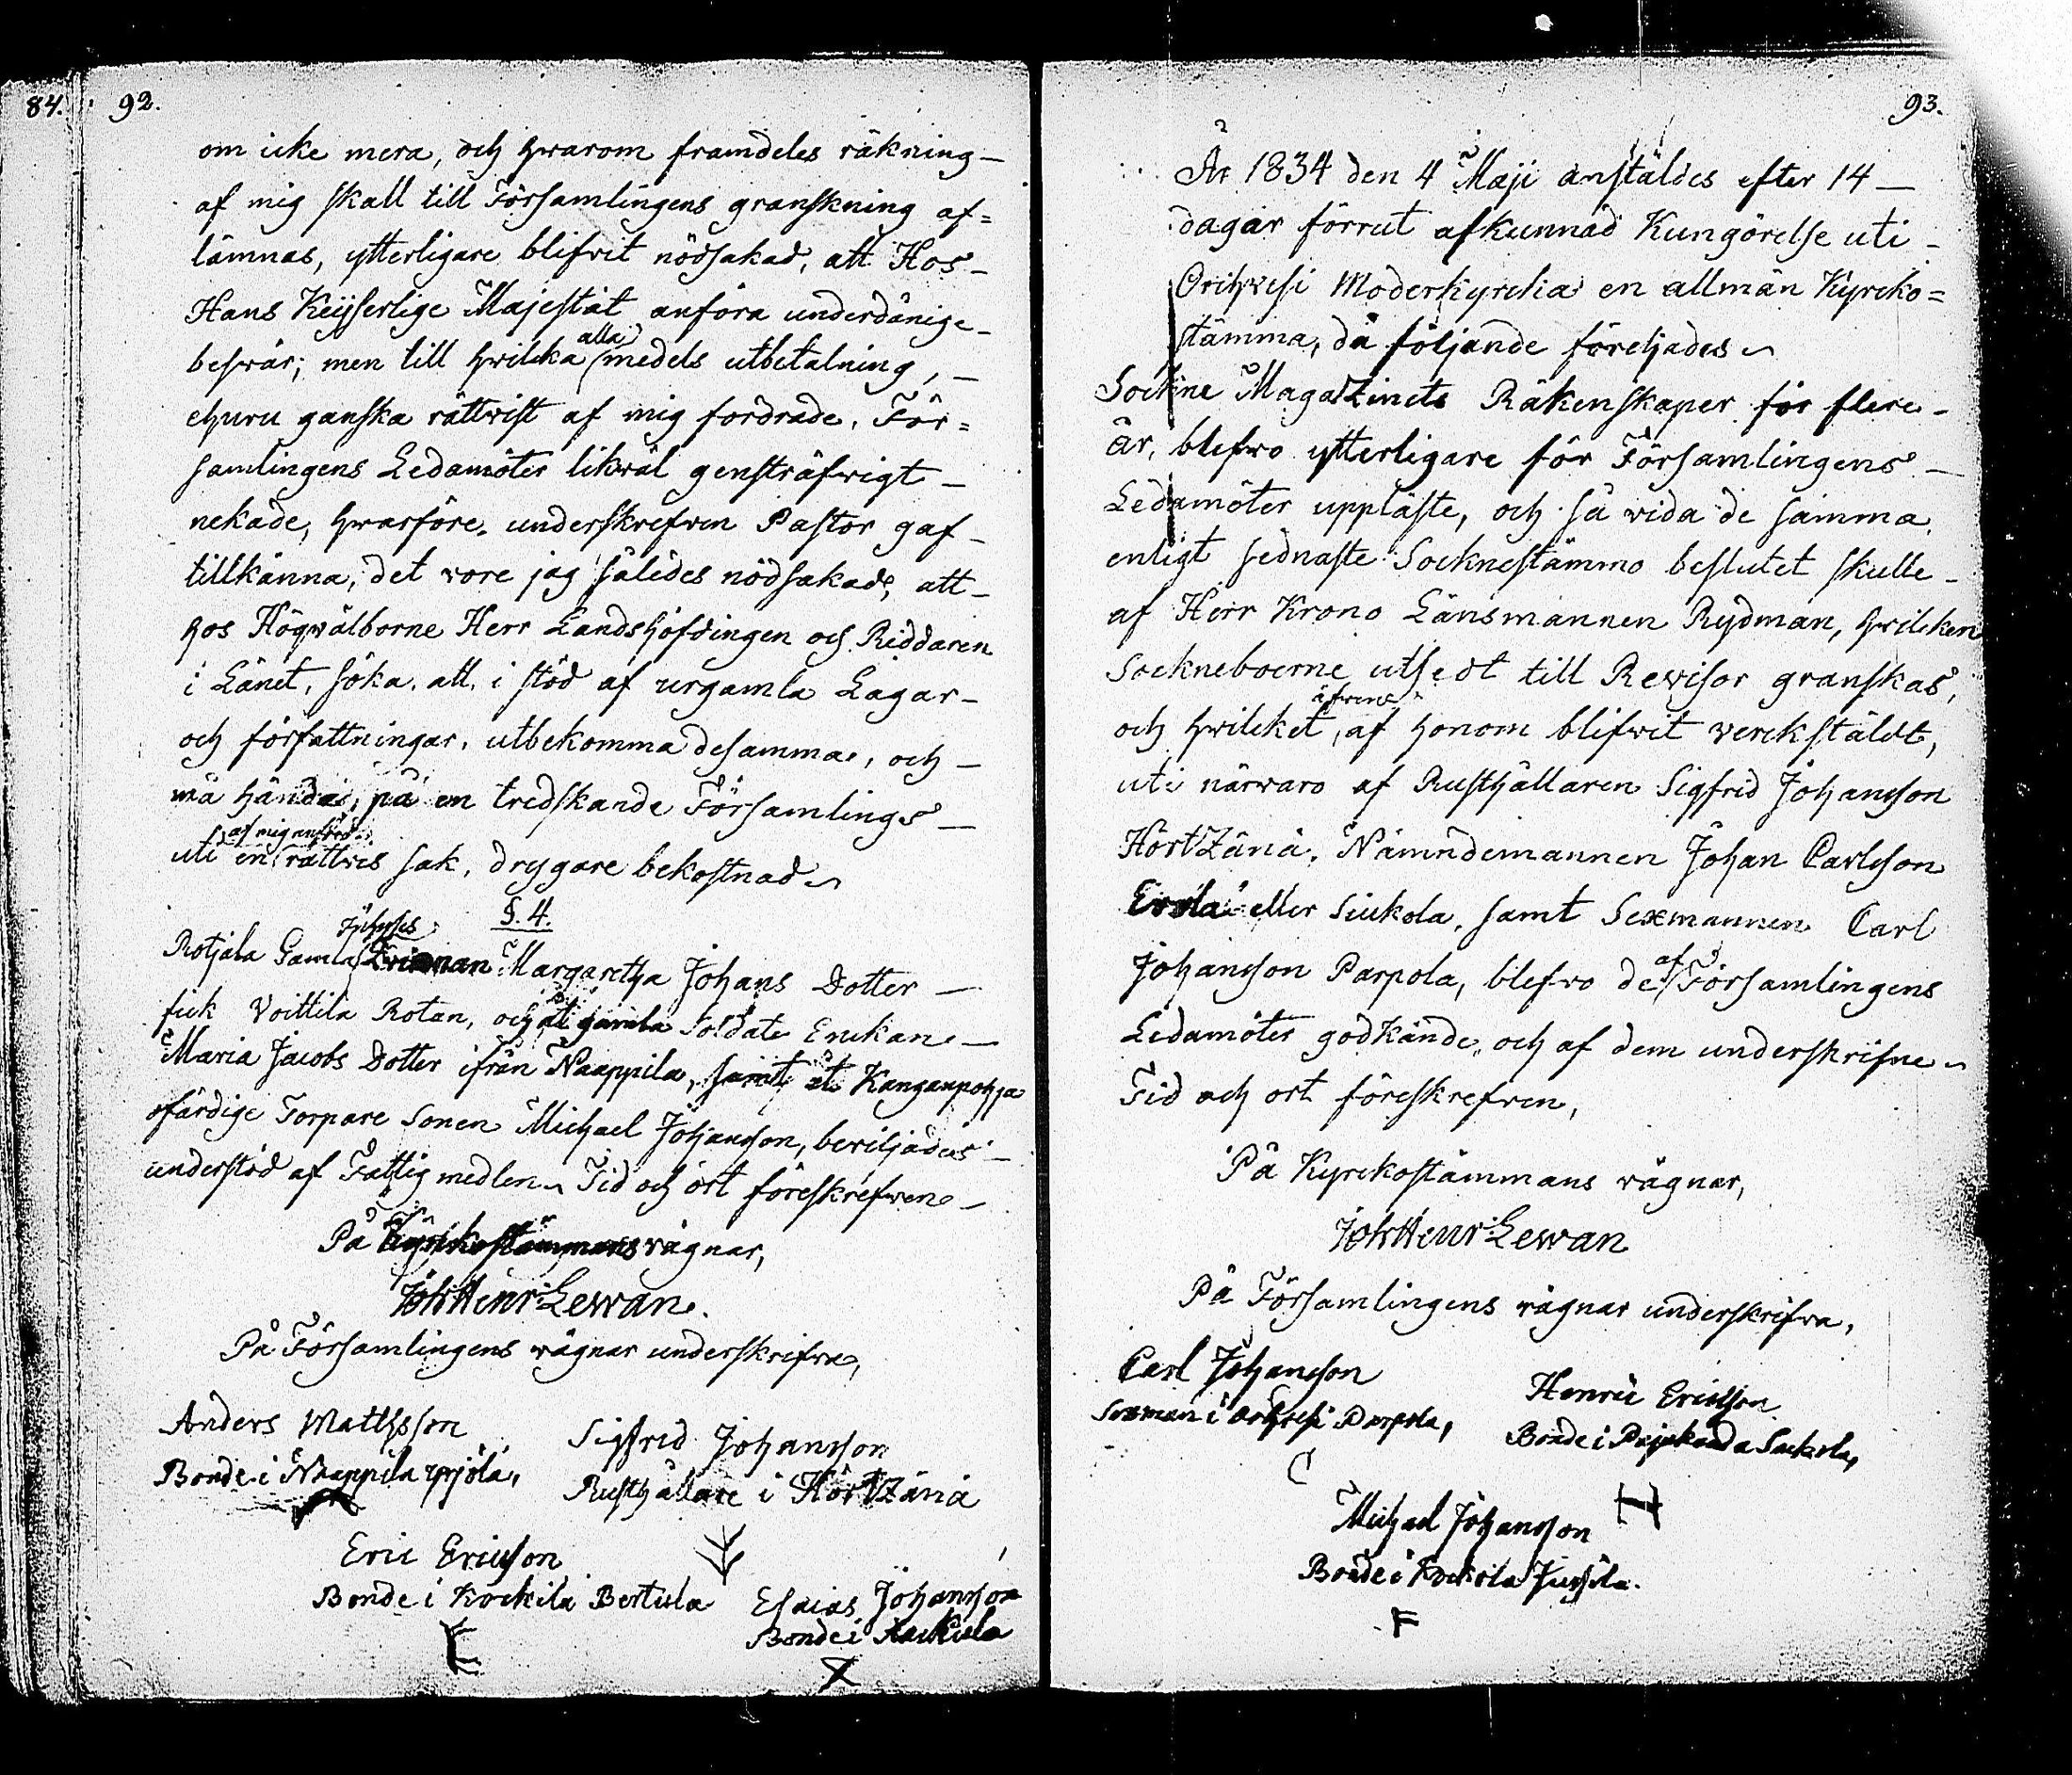 84.
92.
om icke mera, och hwarom framdeles räkning
af mig skall till Församlingens granskning af=
lämnas, ytterligare blifvit nödsakad, att Hos
Hans Keijserlige Majestät anföra underdånige
beswär; men till hwilcka alla medels utbetalning,
ehuru ganska rättwist af mig fordrade, För=
samlingens Ledamöter likwäl gensträfwigt
nekade, hwarföre underskrefwen Pastor gaf
tillkänna, det wore jag således nödsakad, att
hos Högwälborne Herr Landshöfdingen och Riddaren
i Länet, söka, att i stöd af urgamla Lagar
och författningar, utbekomma desamma, och
må hända, på en tredskande Församlings
uti en af mig anförd rättwis sak, drygare bekostnad
§. 4.
Rotjala Gamla Enkan Margaretha Johans Dotter
fick Voittila Rotan, och åt gamla Soldats Enckan
Maria Jacobs Dotter ifrån Naappila, samt åt Kanganpohja
ofärdige Torpare Sonen Michael Johansson, beviljades
understöd af Fattigmedlen. Tid och ort föreskrefwen
På Kyrckostämmans wägnar,
Joh: Henr: Lewan.
På Församlingens wägnar underskrifwa,
Anders Mattsson
Bonde i Naappila Yrjölä,
Sigfrid Johansson
Rusthållare i HörtZänä
Eric Ericsson
Bonde i Kockila Bertula
Esaias Johansson
Bonde i
93.
År 1834 den 4 Maji anstäldes efter 14
dagar förrut afkunnad Kungörelse uti
Orihwesi Moderkyrcka en allmän Kyrcko=
stämma, då följande föreljades
Sockne Magazinets Räkenskaper för flere
år, blefwo ytterligare för Församlingens
Ledamöter uppläste, och så vida de samma
enligt sednaste Socknestämmo beslutet skulle
af Herr Krono Länsmannen Rydman, hwilcken
Sockneboerne utsedt till Revisor granskas,
och hwilcket äfwen, af honom blifwit werckstäldt,
uti närwaro af Rusthållaren Sigfrid Johansson
HörtZänä, Nämndemannen Johan Carlsson
Erola eller Siukola, samt Sexmannen Carl
Johansson Parpola, blefwo de af Församlingens
Ledamöter godkände, och af dem underskrifne
Tid och ort föreskrefwen,
På Kyrckostämmans wägnar,
Joh: Henr: Lewan
På Församlingens wägnar underskrifwa,
Carl Johansson
Sexman i Orihwesi Parpola,
Henric Ericsson
Bonde i Pajukanda Suckola,
Michael Johansson
Bonde i Kockola Jussila.